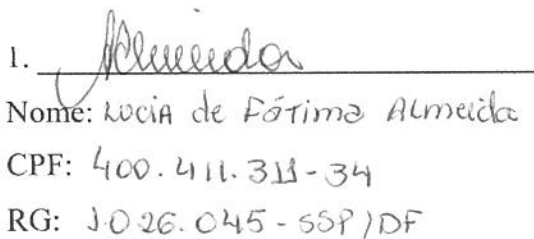 1. Almeida
Nome: Lucia de Fátima Almeida
CPF: 400.411.311-34
RG: 1.026.045 - SSP/DF